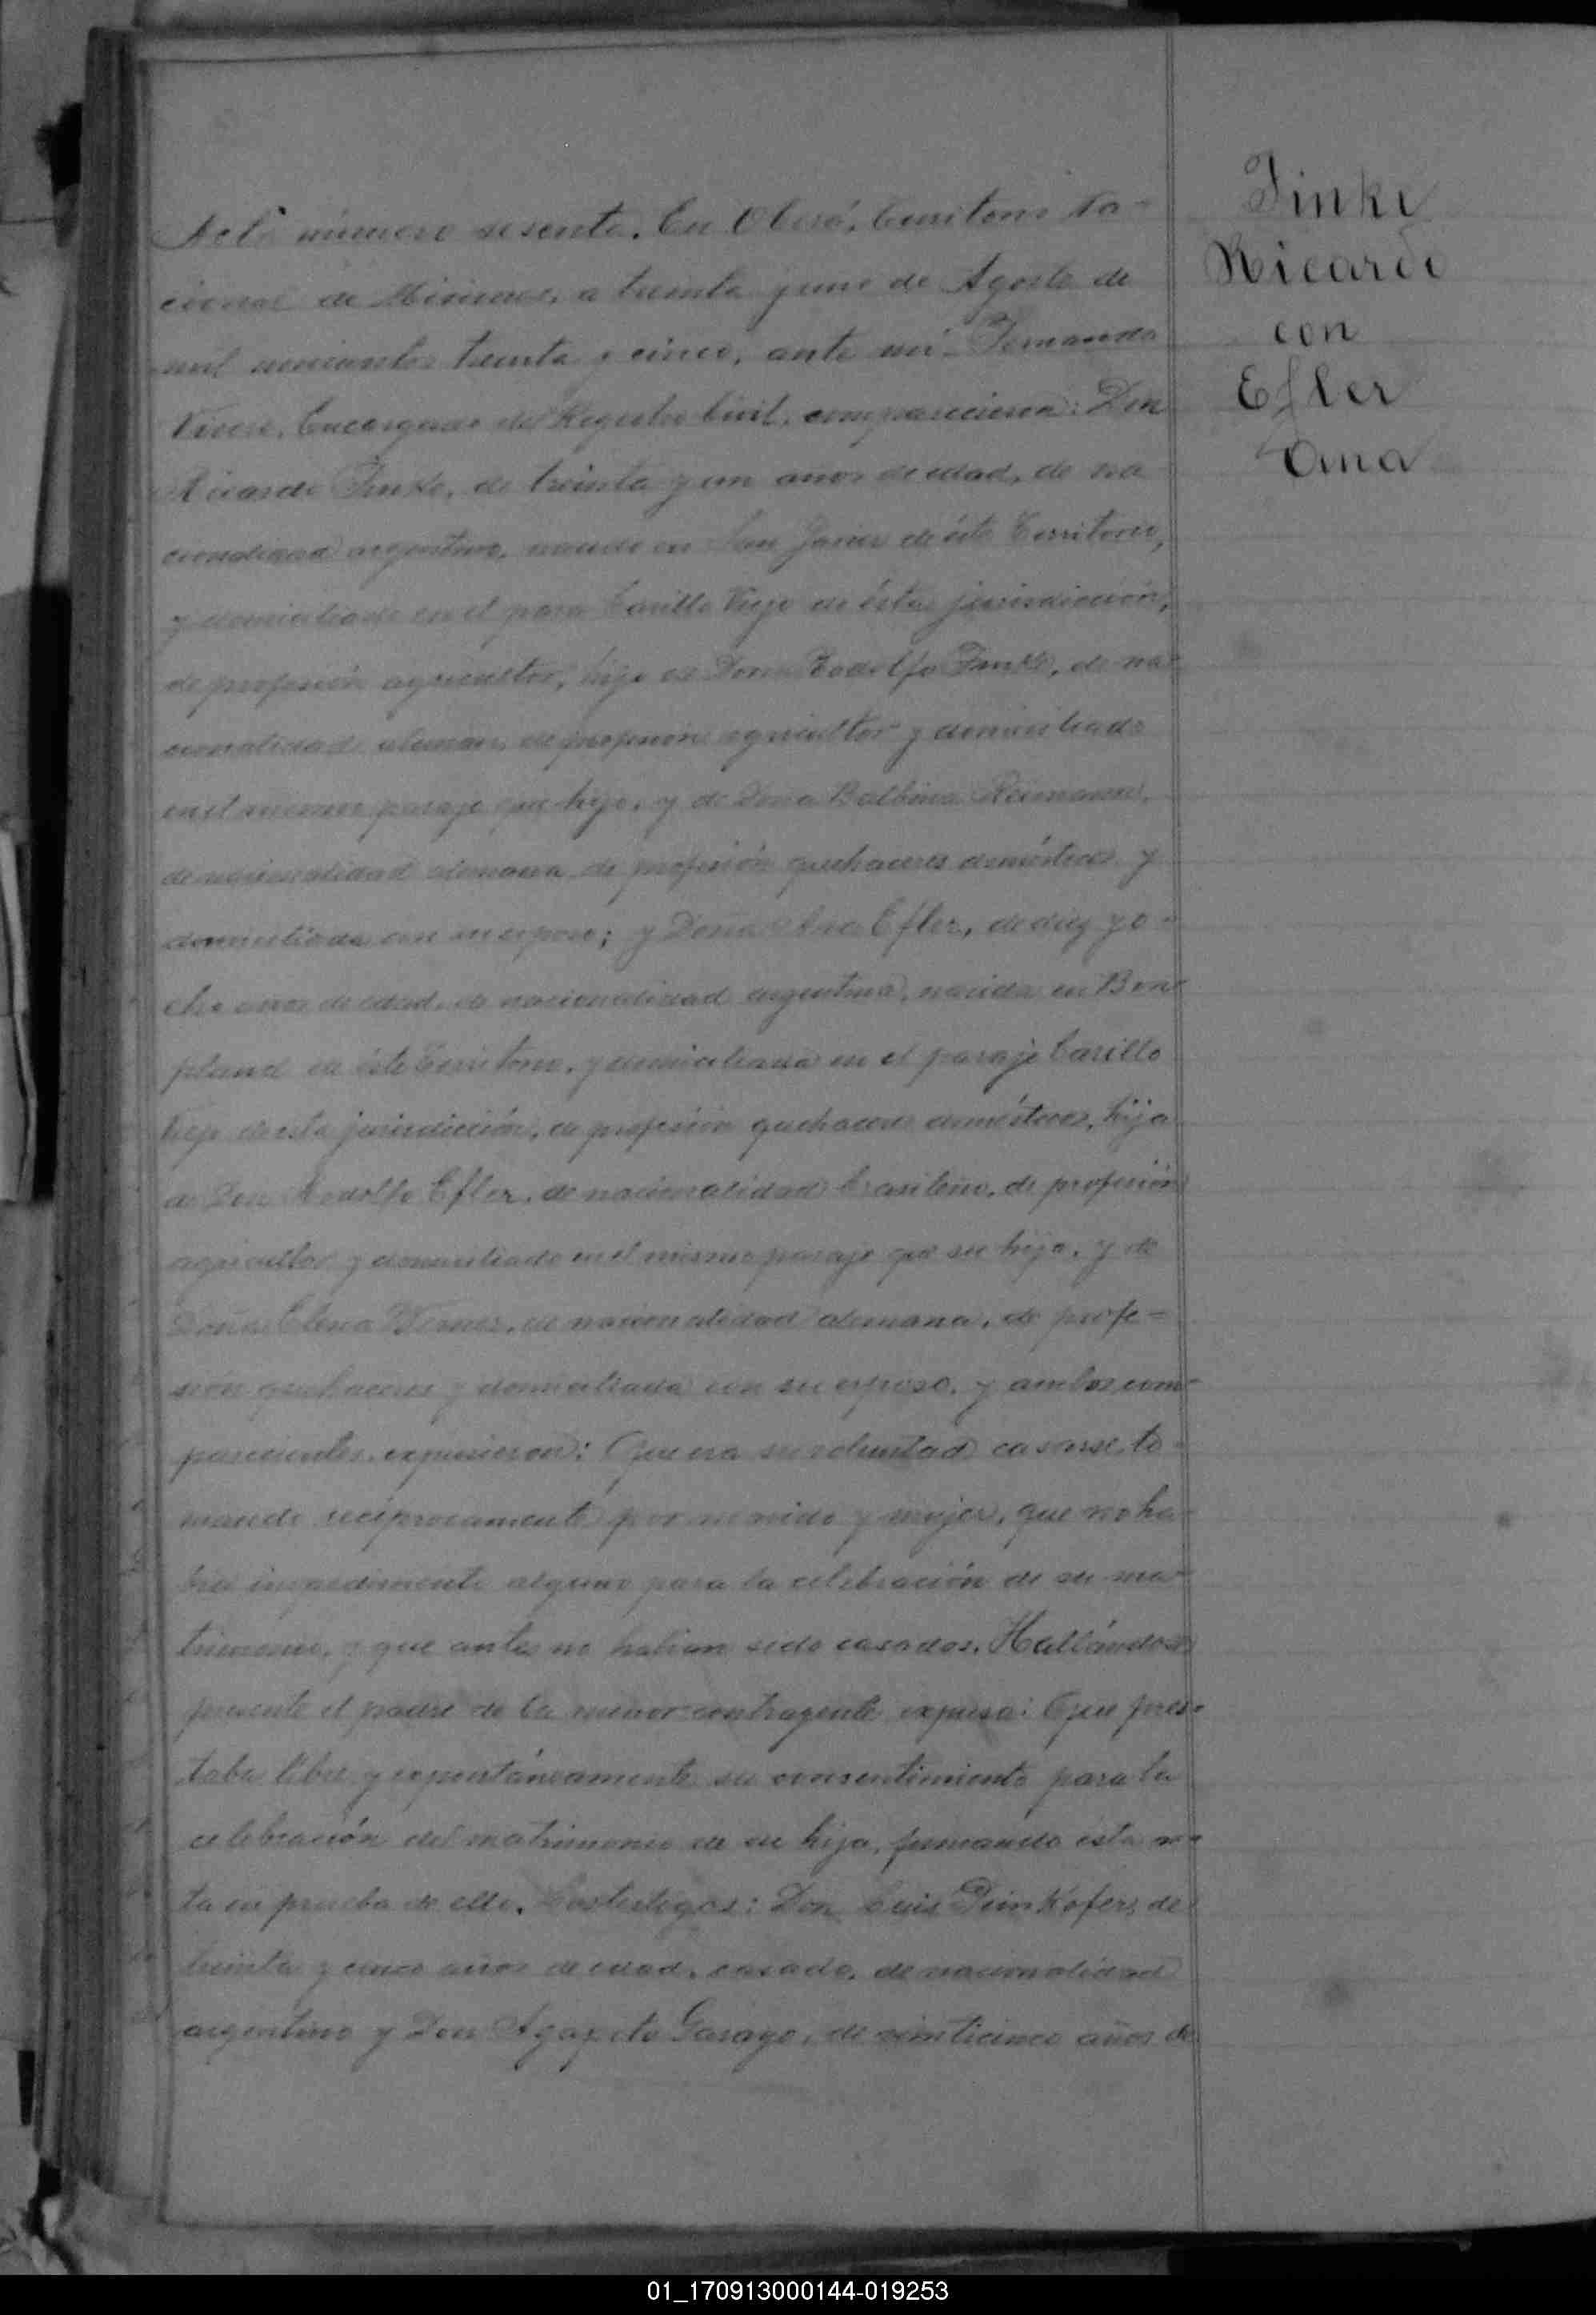 Acta número sesenta. En Oberá, Territorio Na-
cional de Misiones, a treinta y uno de Agosto de
mil novecientos treinta y cinco, ante mí Fernando
Encargado del Registro Civil, comparecieron: Don
Ricardo Finke, de treinta y un años de edad, de na
cionalidad argentino, nacido en San Javier de éste Territorio,
y domiciliado en el Viejo de ésta jurisdicción,
de profesión agricultor, hijo de Finke, de na-
cionalidad aleman, de profesión agricultor y domiciliado
en el mismo paraje que hijo, y de Doña Balbina
de nacionalidad alemana de profesión quehaceres domésticos y
domiciliada con su esposo; y Doña Ana Efler, de diez y o-
cho años de edad, de nacionalidad argentina, nacida en Bon-
pland de éste Territorio, y domiciliada en el paraje
Viejo de esta jurisdicción, de profesión quehaceres domésticos, hija
de Don Rodolfo Efler, de nacionalidad brasileño, de profesión
agricultor y domiciliado en el mismo paraje que su hija, y de
Doña Elena de nacionalidad alemana, de profe=
sión quehaceres y domiciliada con su esposo, y ambos com-
parecientes, expusieron: Que era su voluntad casarse, to-
mando reciprocamente por marido y mujer, que no ha-
bia impedimento alguno para la celebración de su ma-
trimonio, y que antes no habian sido casados. Hallándose
presente el padre de la menor contrayente expuso: Que pres-
taba libre y espontáneamente su consentimiento para la
celebración del matrimonio de su hija, firmando esta ac-
ta en prueba de ello. Don Luis de
treinta y cinco años de edad, casado, de nacionalidad
argentino y Don Agapito Garayo, de veinticinco años de
Finke
Ricardo
con
Efler
Ana
01_170913000144-019253